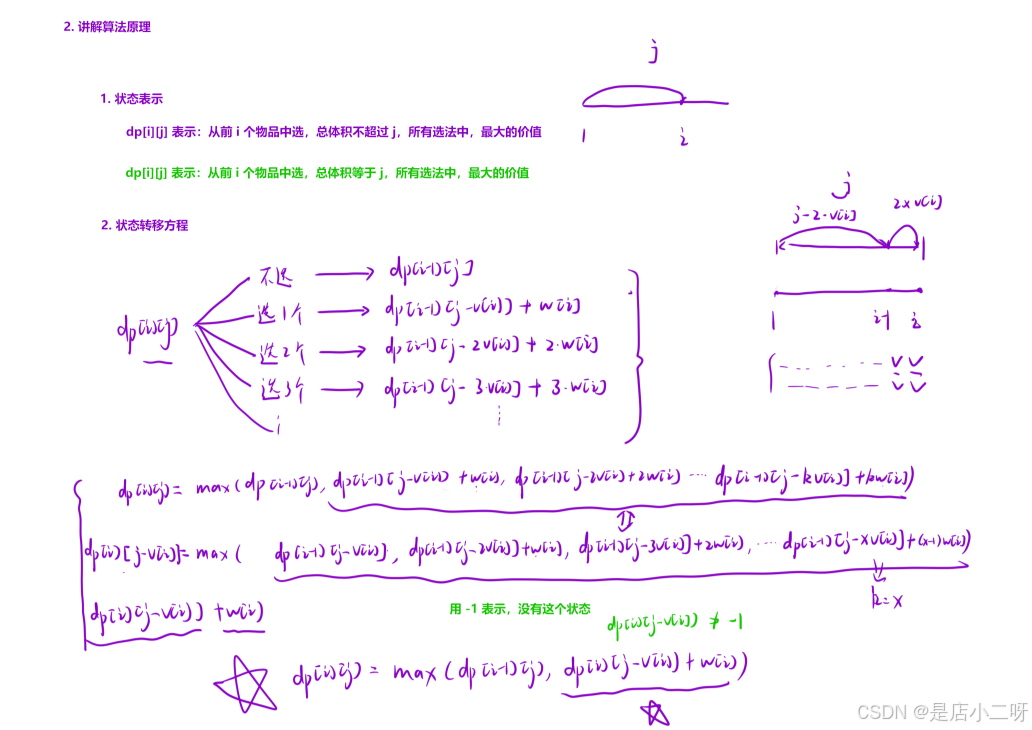 2. 讲解算法原理
j
1. 状态表示
dp[i][j] 表示：从前 i 个物品中选，总体积不超过 j，所有选法中，最大的价值
1 i
dp[i][j] 表示：从前 i 个物品中选，总体积等于 j，所有选法中，最大的价值
j
j-2·v[i] 2×v[i]
2. 状态转移方程
不选 → dp[i-1][j]
选1个 → dp[i-1][j-v[i]] + w[i]
1 i-1 i
dp[i][j]
选2个 → dp[i-1][j-2v[i]] + 2·w[i]
选3个 → dp[i-1][j-3·v[i]] + 3·w[i]
dp[i][j] = max(dp[i-1][j], dp[i-1][j-v[i]] + w[i], dp[i-1][j-2v[i]]+2w[i] ··· dp[i-1][j-kv[i]]+kw[i])
dp[i][j-v[i]] = max( dp[i-1][j-v[i]], dp[i-1][j-2v[i]]+w[i], dp[i-1][j-3v[i]]+2w[i], ··· dp[i-1][j-xv[i]]+(x-1)w[i])
k=x
dp[i][j-v[i]] + w[i]
用 -1 表示，没有这个状态
dp[i][j-v[i]] ≠ -1
dp[i][j] = max(dp[i-1][j], dp[i][j-v[i]] + w[i])
CSDN @是店小二呀